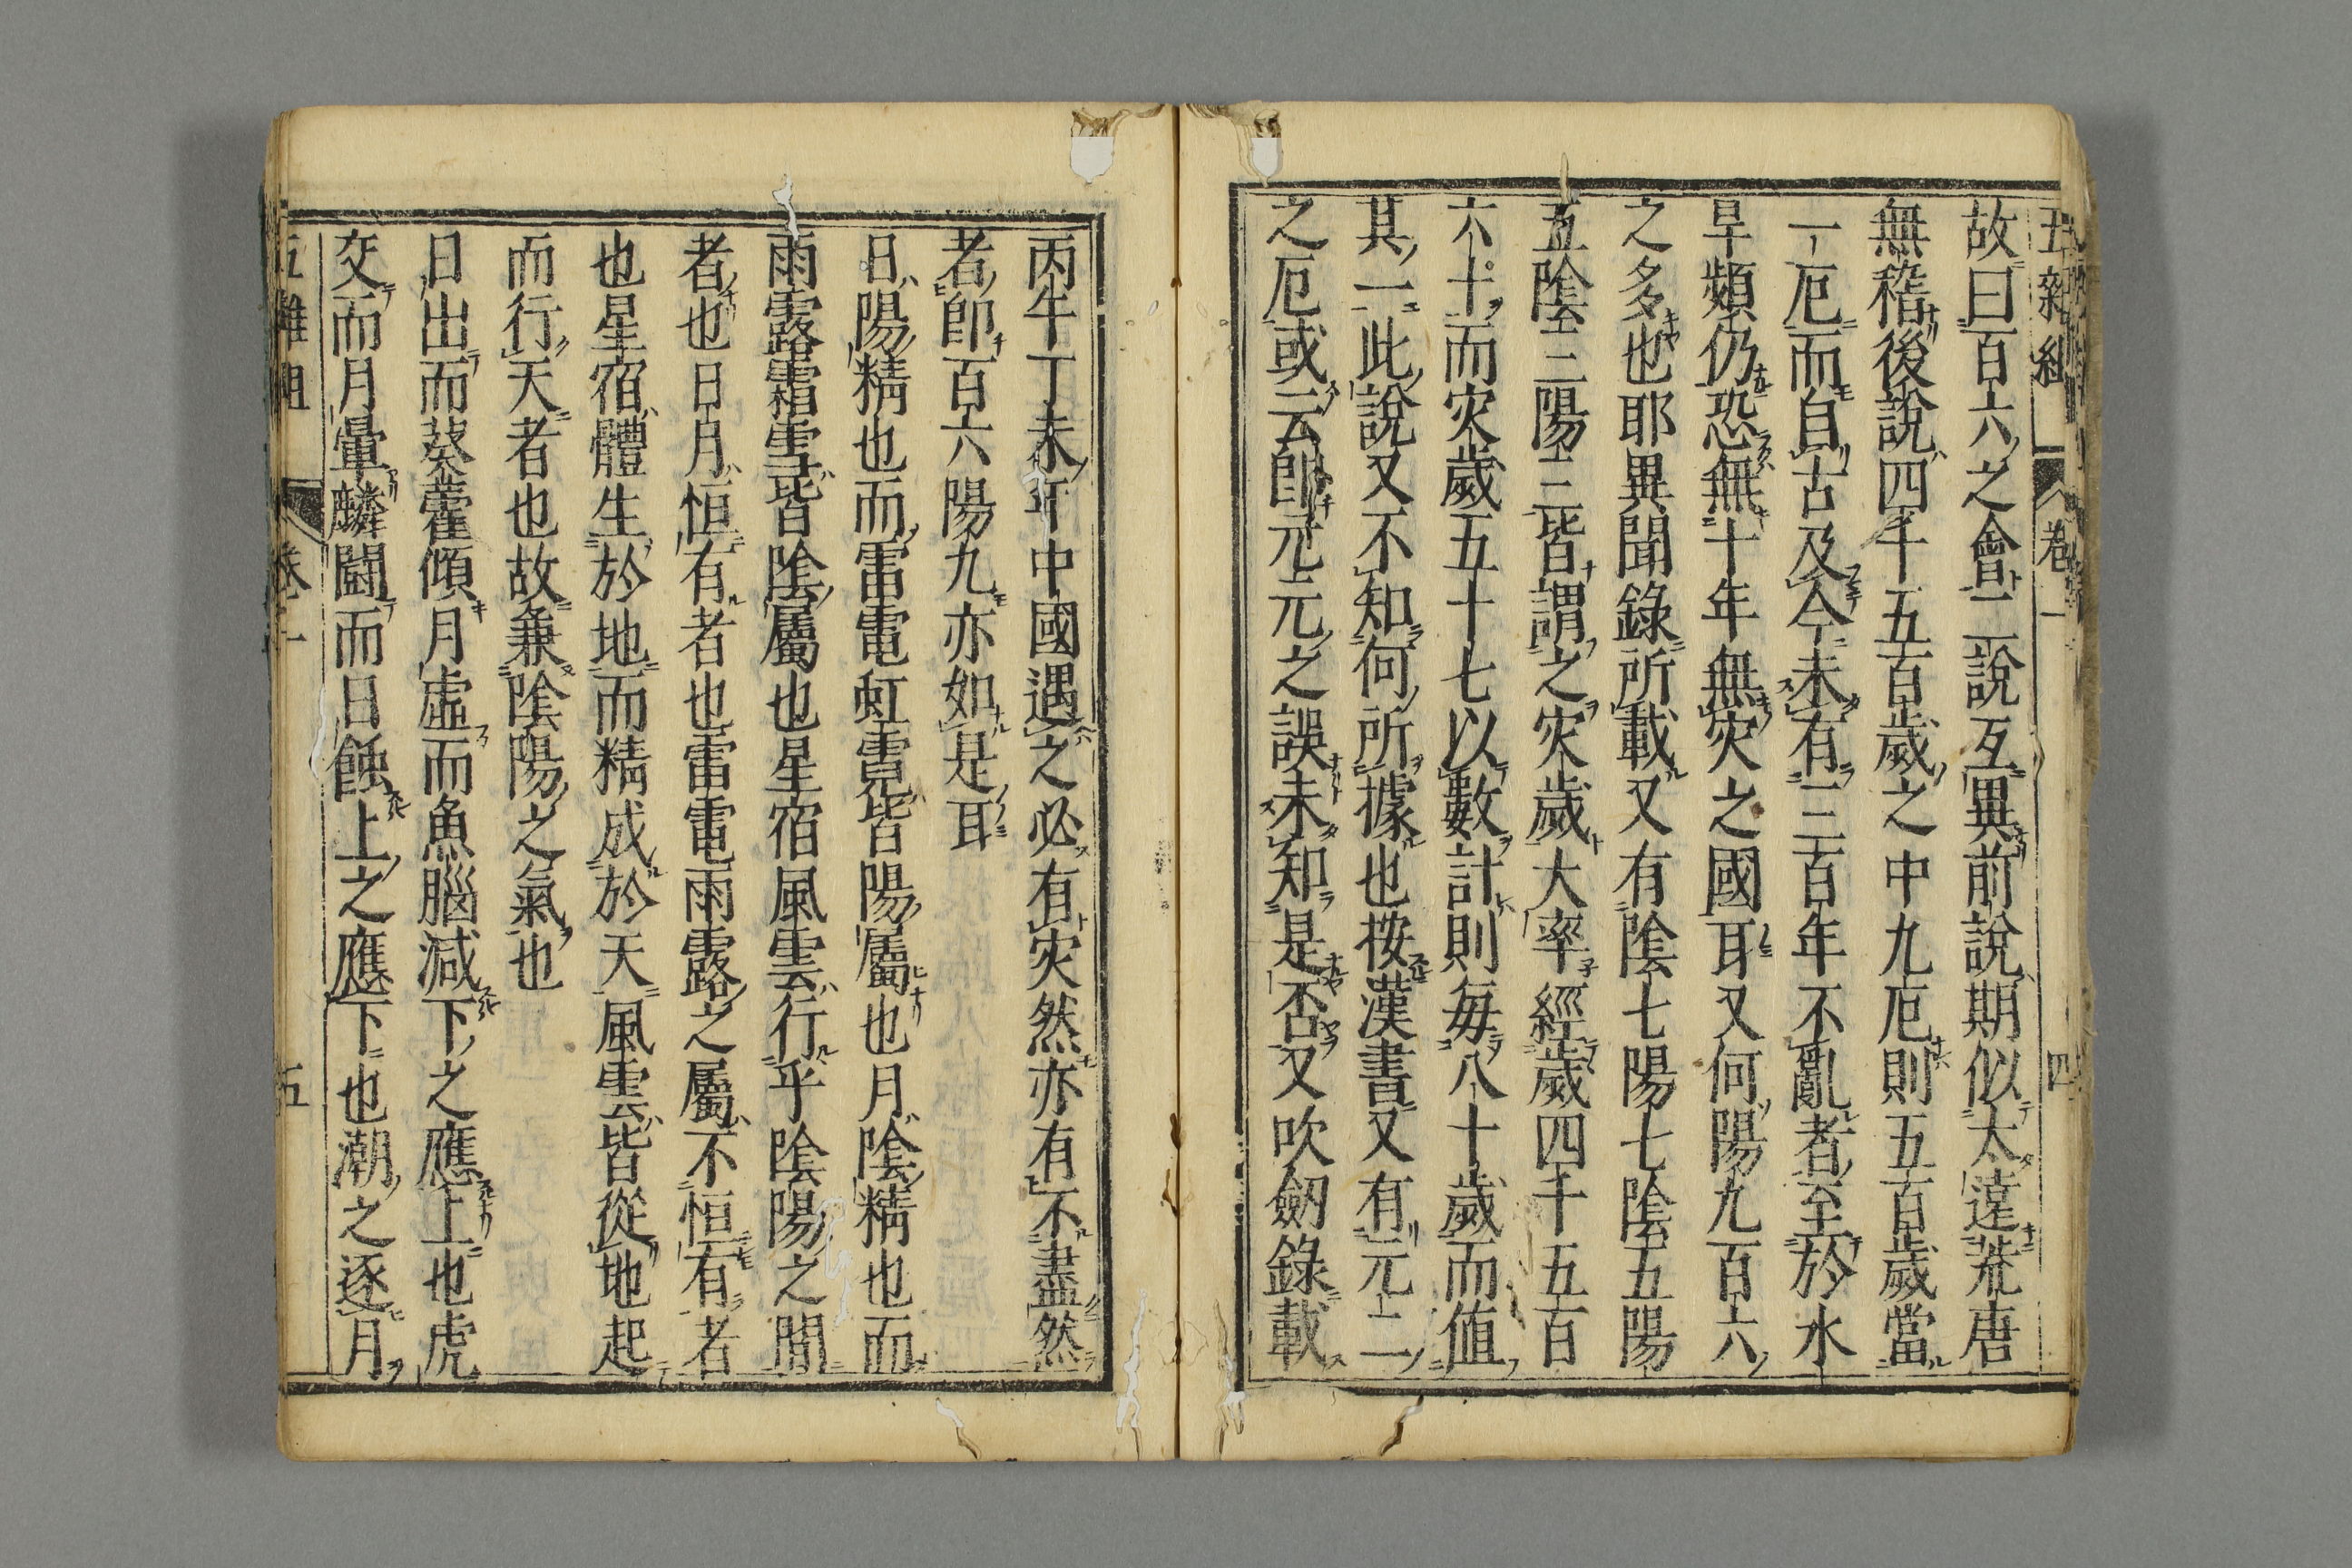 五雜組 卷一 四
故曰百六之會二說互異前說期似太遠荒唐
無稽後說四千五百歲之中九厄則五百歲當
一厄而自古及今未有三百年不亂者至於水
旱頻仍恐無十年無灾之國耳又何陽九百六
之多也耶異聞錄所載又有陰七陽七陰五陽
五陰三陽三皆謂之灾歲大率經歲四千五百
六十而灾歲五十七以數計則每八十歲而值
其一此說又不知何所據也按漢書又有元二
之厄或云卽元元之誤未知是否又吹劒錄載
丙午丁未年中國遇之必有灾然亦有不盡然
者卽百六陽九亦如是耳
日陽精也而雷電虹霓皆陽屬也月陰精也而
雨露霜雪皆陰屬也星宿風雲行乎陰陽之間
者也日月恒有者也雷電雨露之屬不恒有者
也星宿體生於地而精成於天風雲皆從地起
而行天者也故兼陰陽之氣也
日出而葵藿傾月虛而魚腦減下之應上也虎
交而月暈麟鬪而日蝕上之應下也潮之逐月
五雜組 卷一 五